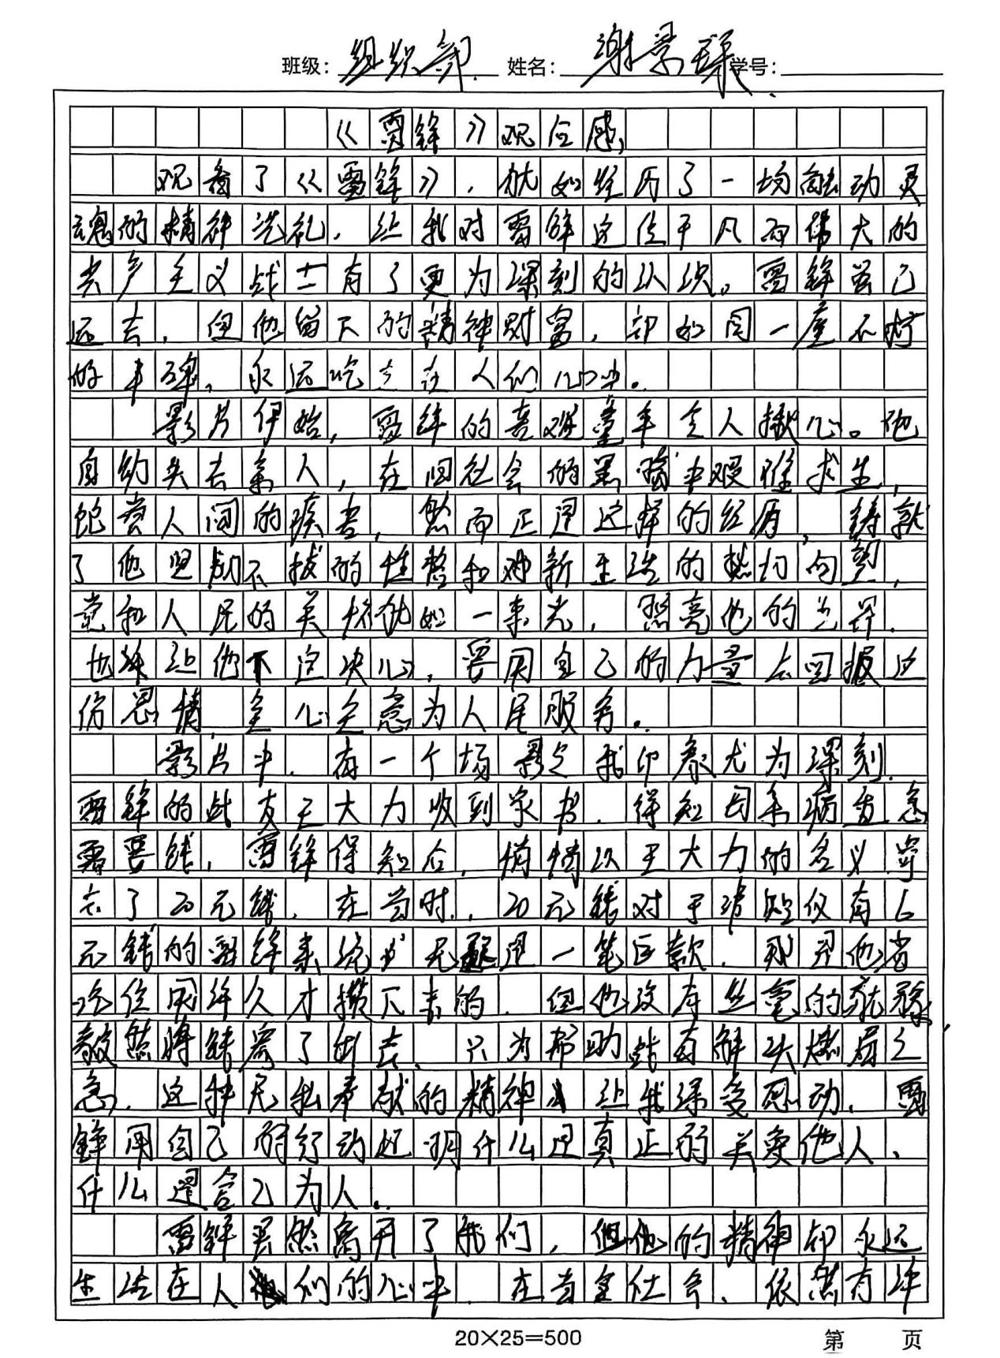 班级：组织部 姓名：谢景琛 学号：
《雷锋》观后感
观看了《雷锋》，犹如经历了一场触动灵
魂的精神洗礼，让我对雷锋这位平凡而伟大的
共产主义战士有了更为深刻的认识。雷锋曾已
远去，但他留下的精神财富，却如同一座不朽
的丰碑，永远屹立在人们心中。
影片伊始，雷锋的悲惨童年令人揪心。他
自幼失去亲人，在旧社会的黑暗中艰难求生，
饱尝人间的疾苦，然而正是这样的经历，铸就
了他坚韧不拔的性格和对新生活的热切向望，
党和人民的关怀犹如一束光，照亮他的世界.
也许让他下定决心，要用自己的力量去回报这
份恩情，全心全意为人民服务.
影片中.有一个场景令我印象尤为深刻.
雷锋的战友王大力收到家书.得知母亲病重急
需要钱，雷锋得知后，悄悄以王大力的名义寄
去了20元钱.在当时，20元钱对于津贴仅有6
元钱的雷锋来说无疑是一笔巨款.那是他省
吃住用许久才攒下来的.但他没有丝毫的犹豫，
毅然将钱寄了出去、只为帮助战友解决燃眉之
急.这种无私奉献的精神让我深受感动.雷
锋用自己的行动证明什么是真正的关爱他人、
什么是舍己为人.
雷锋虽然离开了我们，但他的精神却永远
生活在人们的心中.在当今社会、依然有许
20×25=500
第 页